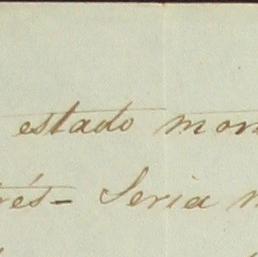 estado mor
rés- Seria